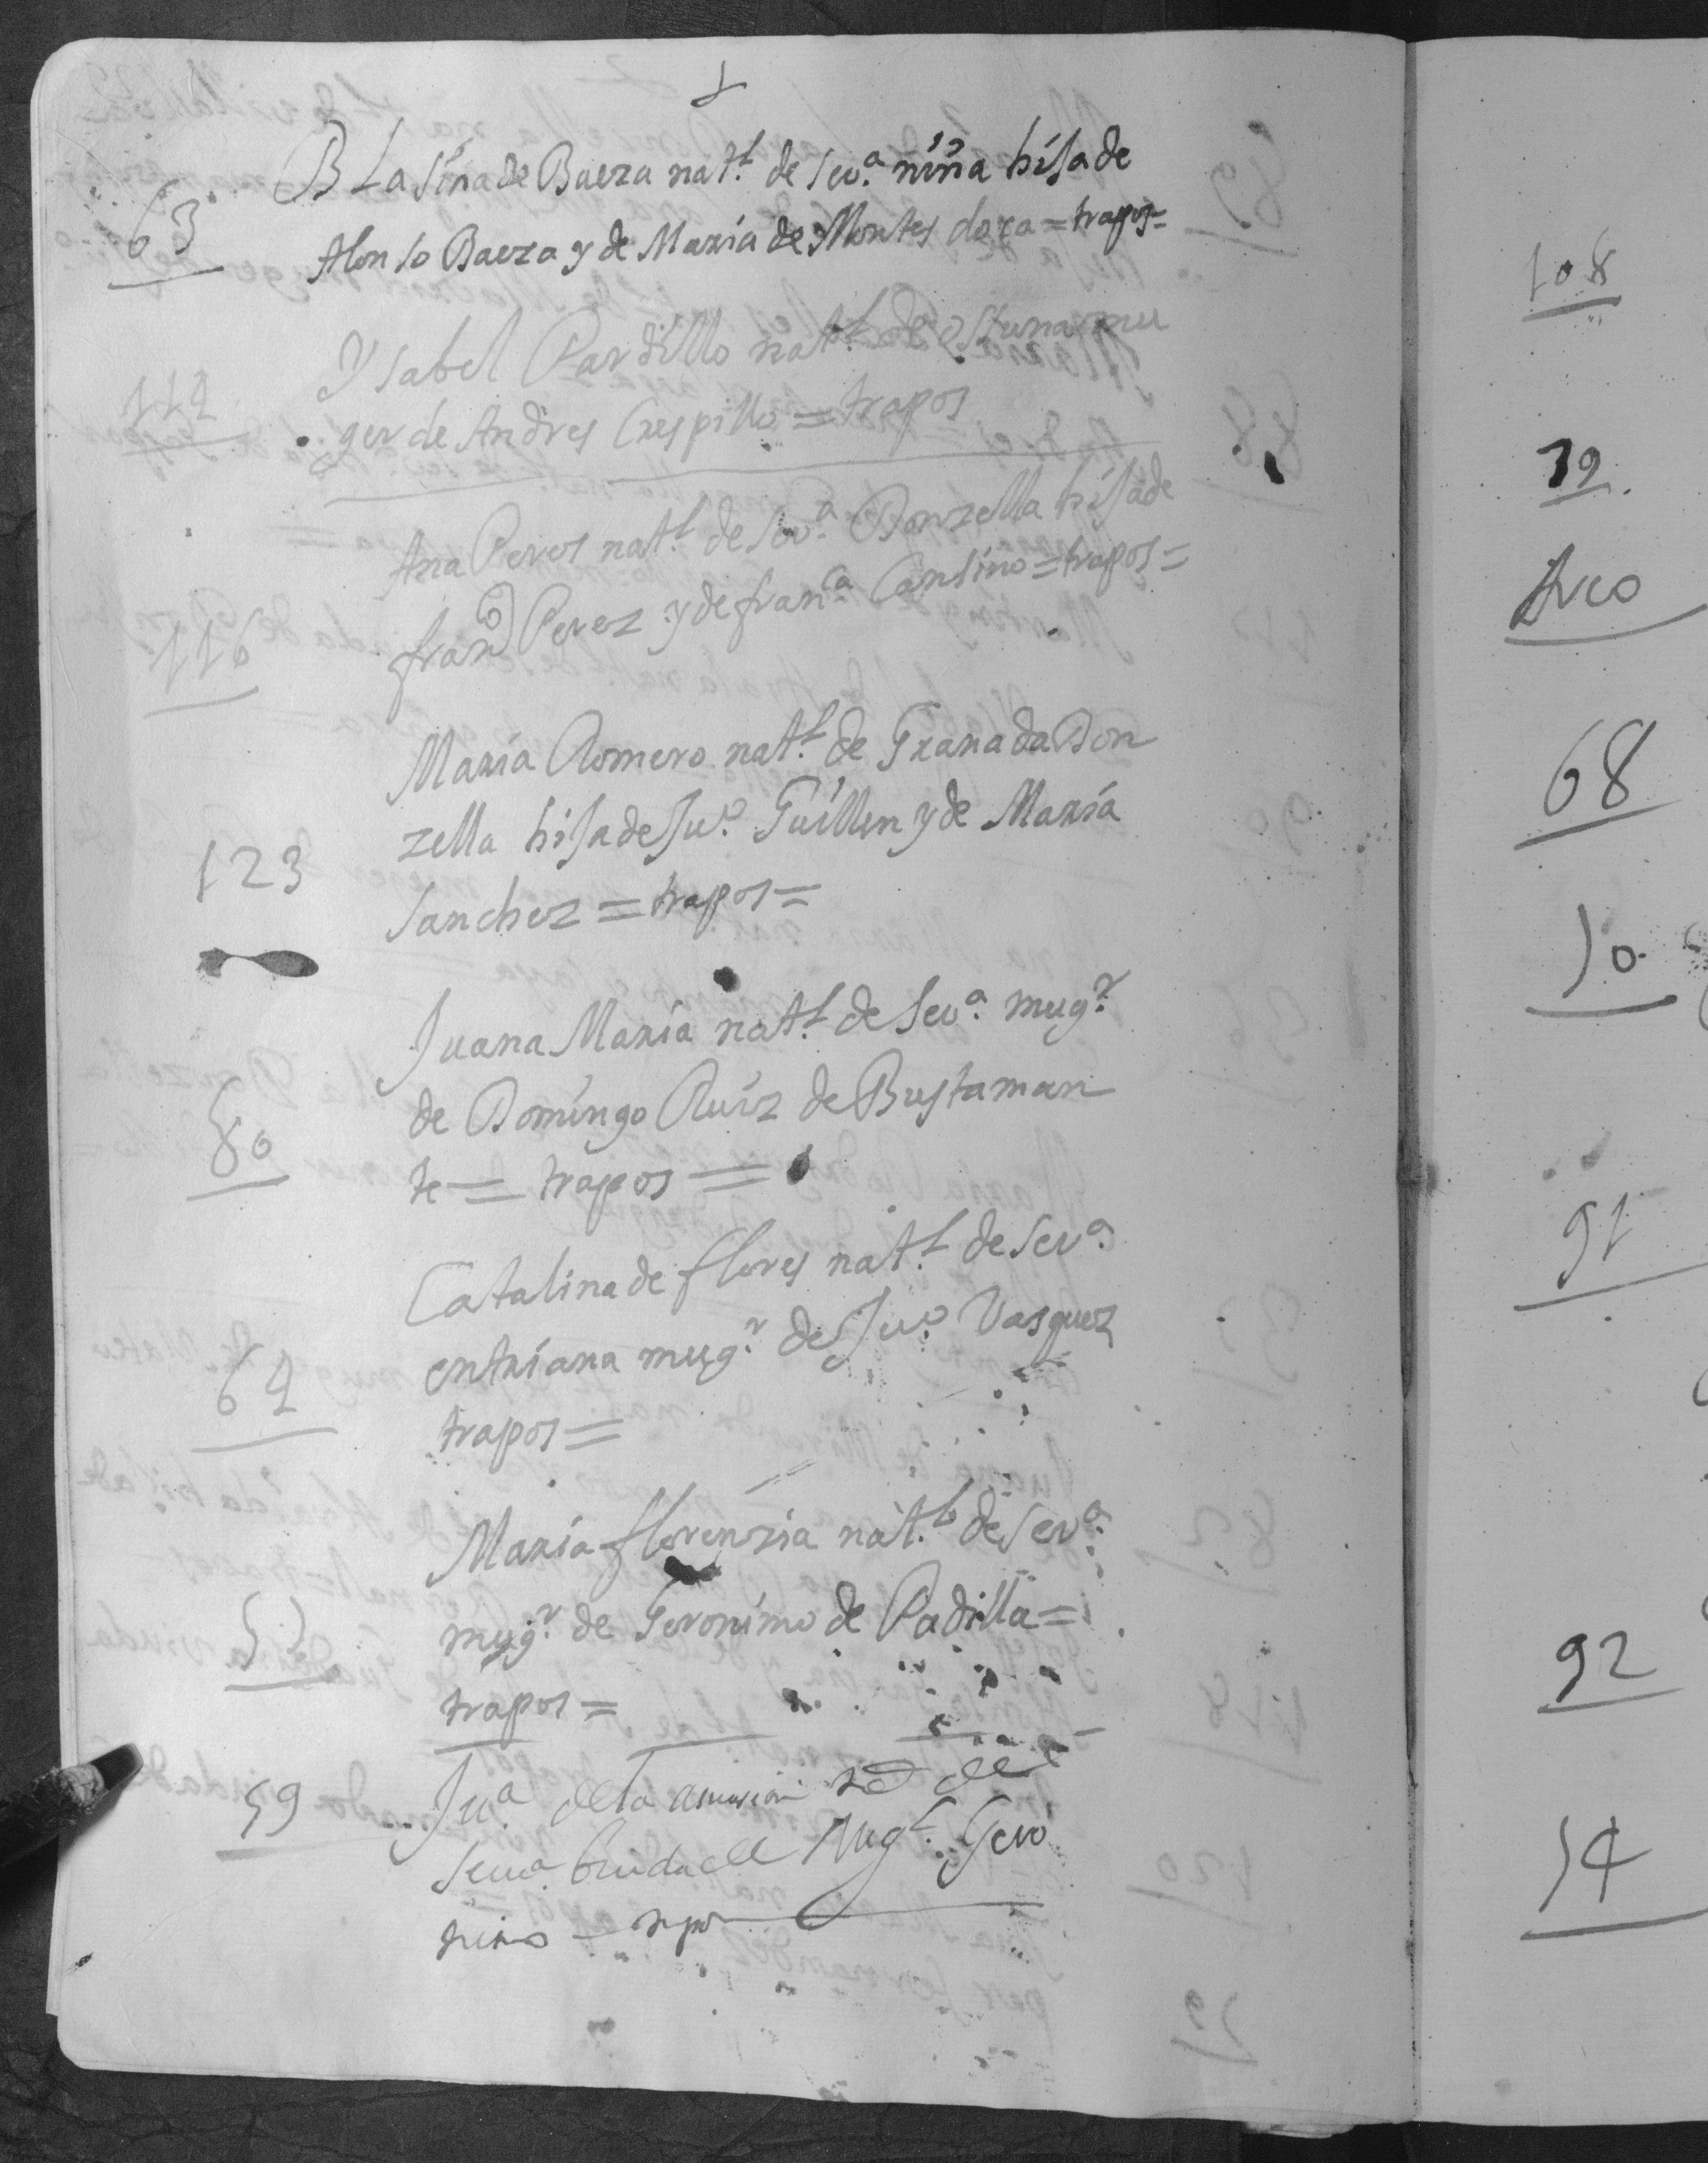 63 BLasina de Baeza nat.l de sev.a niña hija de
Alonso Baeza y de Maria de Montes doca = trapos =
112 Ysabel Pardillo nat.l de osuna mu
ger de Andres Crespillo = trapos
Ana Peres nat.l de sev.a Donzella hija de
116 fran.co Perez y de fran.ca Cansino = trapos =
Maria Romero nat.l de Granada Don
zella hija de Ju.o Guillen y de Maria
123 Sanchez = trapos =
Juana Maria nat.l de sev.a mug.r
80 de Domingo Ruiz de Bustaman
te = trapos =
Catalina de flores nat.l de sev.a
64 en triana mug.r de Ju.o Vasquez
trapos =
Maria florenzia nat.l de sev.a
55 mug.r de Geronimo de Padilla =
trapos =
59 Ju.a de la de
Seu.a biuda de Geró
nimo
108
79
Arco
68
50
91
92
54